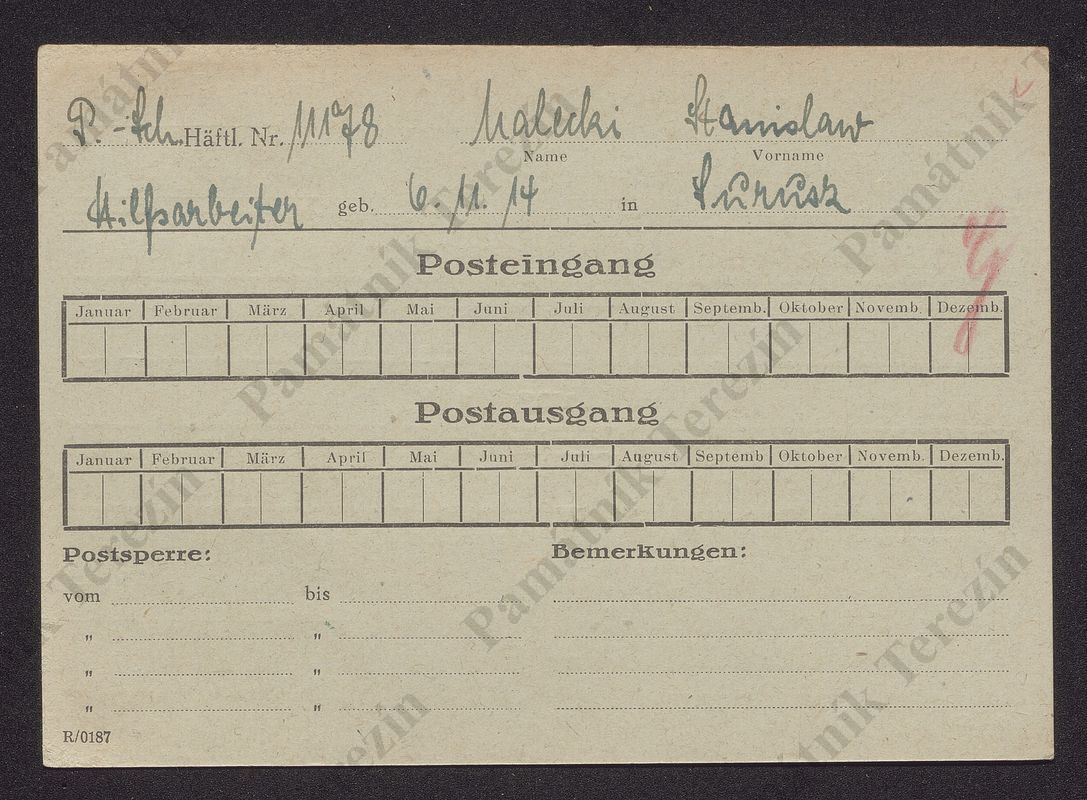 P.-Sch. Häftl. Nr. 11178 Malecki Stanislaw
Name Vorname
Hilfsarbeiter geb. 6. 11. 14 in
Posteingang
Januar Februar März April Mai Juni Juli August Septemb. Oktober Novemb. Dezemb.
Postausgang
Januar Februar März April Mai Juni Juli August Septemb Oktober Novemb. Dezemb.
Postsperre: Bemerkungen:
vom bis
„ „
„ „
„ „
R/0187
Památník Terezín